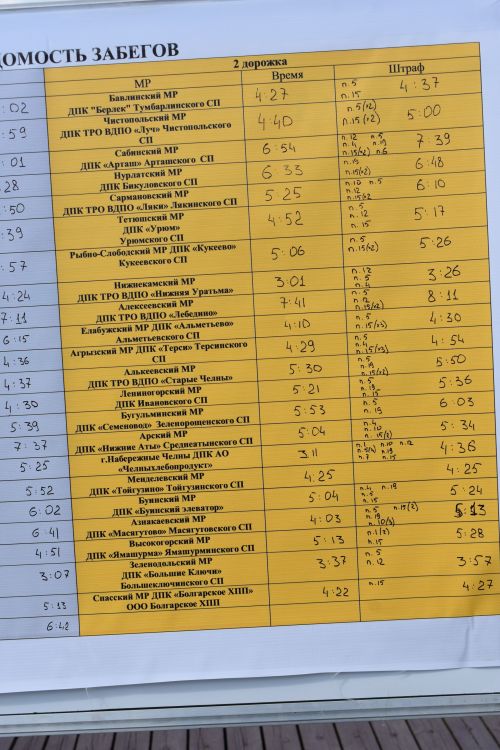 ДОМОСТЬ ЗАБЕГОВ
2 дорожка
МР Время Штраф
:02 Бавлинский МР 4:27 п.5 4:37
ДПК "Берлек" Тумбарлинского СП п.15
:59 Чистопольский МР 4:40 п.5(x2) 5:00
ДПК ТРО ВДПО «Луч» Чистопольского п.15(x2)
СП
:01 Сабинский МР 6:54 п.12 п.5 7:39
ДПК «Арташ» Арташского СП п.4 п.19
п.15(x2) п.6
:28 Нурлатский МР 6 33 п.19 6:48
ДПК Бикуловского СП п.15(x2)
:50 Сармановский МР 5:25 п.10 п.5 6:10
ДПК ТРО ВДПО «Ляки» Лякинского СП п.12
п.15x2
:39 Тетюшский МР 4:52 п.5 5:17
ДПК «Урюм» п.12
Урюмского СП п.15
:57 Рыбно-Слободский МР ДПК «Кукеево» 5:06 п.5 5:26
Кукеевского СП п.15(x2)
4:24 Нижнекамский МР 3:01 п.12 3:26
ДПК ТРО ВДПО «Нижняя Уратьма» п.5
п.4
7:11 Алексеевский МР 7:41 п.5 8:11
ДПК ТРО ВДПО «Лебедино» п.12
п.15(x2)
6:15 Елабужский МР ДПК «Альметьево» 4:10 п.5 4:30
Альметьевского СП п.15(x3)
4:36 Агрызский МР ДПК «Терси» Терсинского 4:29 п.5 4:54
СП п.4
п.15(x3)
4:37 Алькеевский МР 5:30 п.5 5:50
ДПК ТРО ВДПО «Старые Челны» п.19
п.15(x2)
4:30 Лениногорский МР 5:21 п.5 5:36
ДПК Ивановского СП п.19
п.15
5:39 Бугульминский МР 5:53 п.5 6:03
ДПК «Семеновод» Зеленорощенского СП п.19
7:37 Арский МР 5:04 п.4 5:34
ДПК «Нижние Аты» Среднеатынского СП п.10
п.15(2)
5:25 г.Набережные Челны ДПК АО 3,11 п.1 п.10 п.12 4:36
«Челныхлебопродукт» п.5(4) п.19
п.7 п.15
5:52 Менделевский МР 4:25 4:25
ДПК «Тойгузино» Тойгузинского СП
6:02 Буинский МР 5:04 п.4 п.19 5:24
ДПК «Буинский элеватор» п.5
п.15
6:41 Азнакаевский МР 4:03 п.5 п.15(2)
ДПК «Масягутово» Масягутовского СП п.19
п.10(3)
4:51 Высокогорский МР 5:13 п.1(2) 5:28
ДПК «Ямашурма» Ямашурминского СП п.15
3:07 Зеленодольский МР 3:37 п.5 3:57
ДПК «Большие Ключи» п.12
Большеключинского СП
5:13 Спасский МР ДПК «Болгарское ХПП» 4:22 п.15 4:27
ООО Болгарское ХПП
6:42